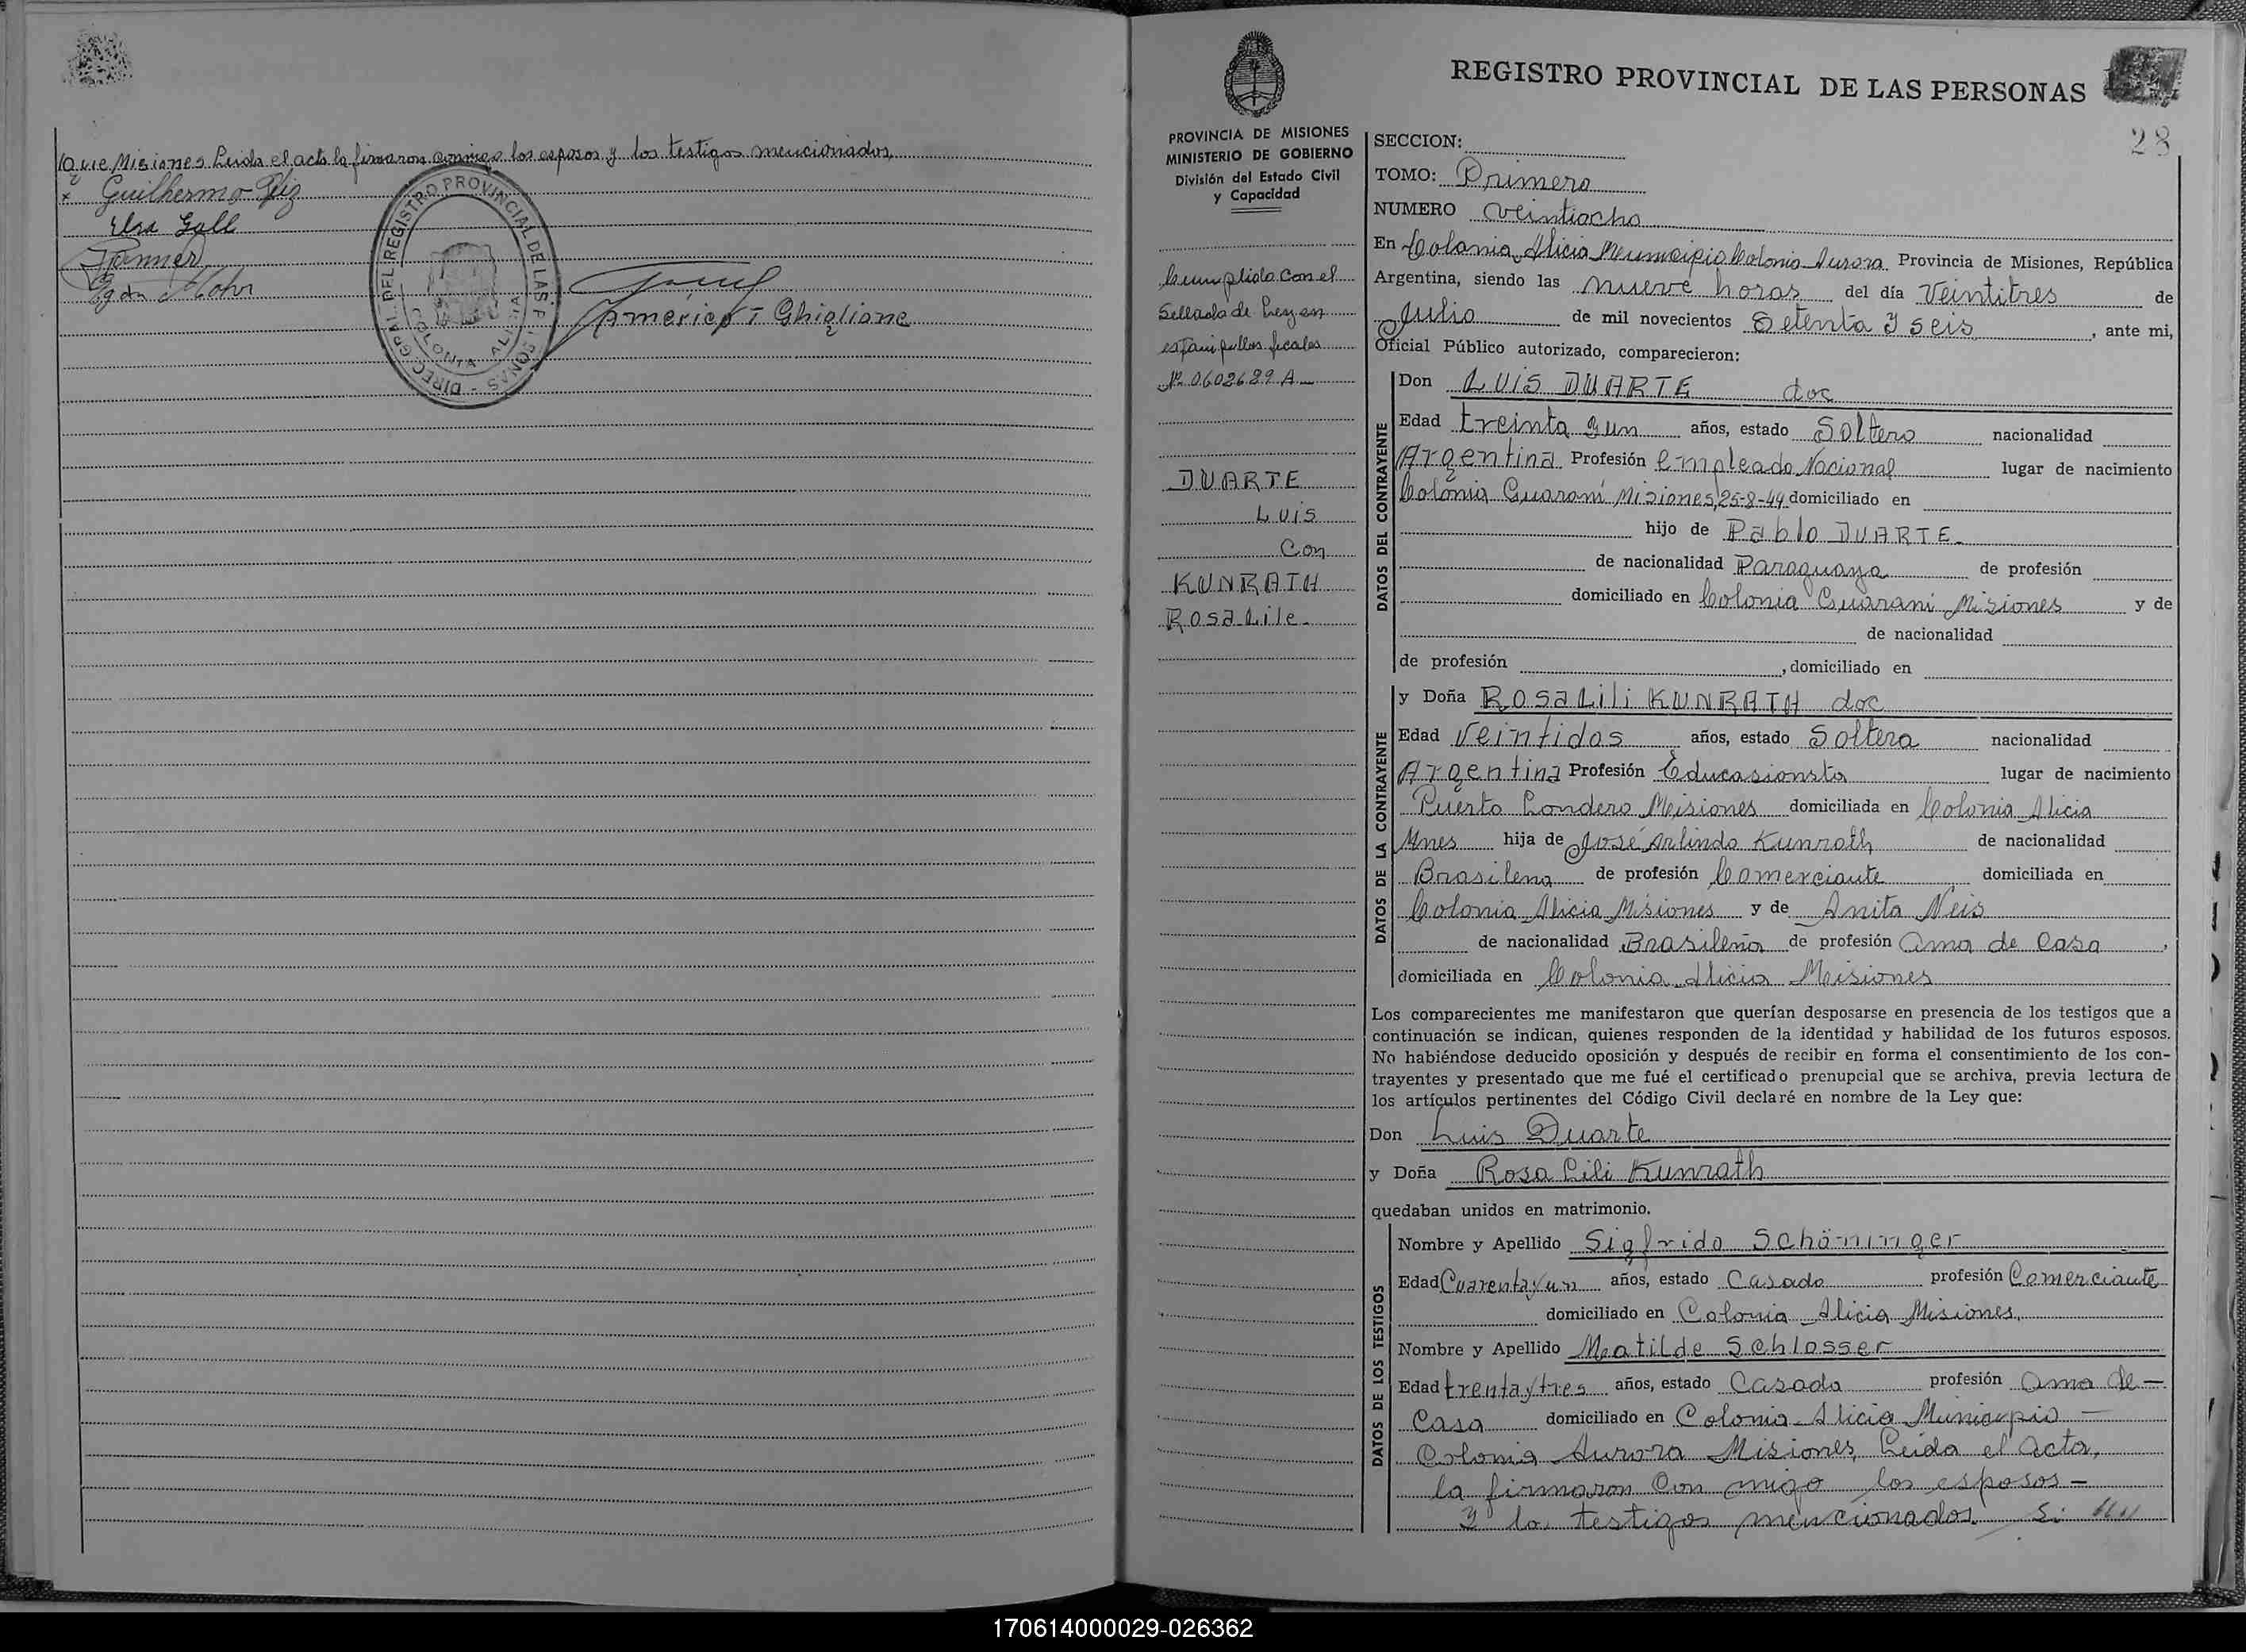 que Misiones Leida el acta la firmaron conmigo los esposos y los testigos mencionados
Guilhermo
Elsa Gall
Egon Mohr
Americo T Ghiglione
DIREC. GRAL. DEL REGISTRO PROVINCIAL DE LAS PERSONAS
COLONIA ALICIA
REGISTRO PROVINCIAL DE LAS PERSONAS
28
PROVINCIA DE MISIONES
MINISTERIO DE GOBIERNO
División del Estado Civil
y Capacidad
Cumplido con el
Sellado de Ley en
estampillas fiscales
Nº 0602689 A
DUARTE
Luis
Con
KUNRATH
Rosa Lile
SECCION:
TOMO: Primero
NUMERO veintiocho
En Colonia Alicia Municipio Colonia Aurora Provincia de Misiones, República
Argentina, siendo las nueve horas del día Veintitres de
Julio de mil novecientos Setenta y seis, ante mi,
Oficial Público autorizado, comparecieron:
DATOS DEL CONTRAYENTE
Don LUIS DUARTE doc
Edad treinta y un años, estado Soltero nacionalidad
Argentina Profesión Empleado Nacional lugar de nacimiento
Colonia Guaraní Misiones, 25-8-44 domiciliado en
hijo de Pablo DUARTE
de nacionalidad Paraguaya de profesión
domiciliado en Colonia Guarani Misiones y de
de nacionalidad
de profesión , domiciliado en
DATOS DE LA CONTRAYENTE
y Doña Rosa Lili KUNRATH doc
Edad Veintidos años, estado Soltera nacionalidad
Argentina Profesión Educasionsta lugar de nacimiento
Puerto Londero Misiones domiciliada en Colonia Alicia
Mnes hija de José Arlindo Kunrath de nacionalidad
Brasilena de profesión Comerciante domiciliada en
Colonia Alicia Misiones y de Anita Neis
de nacionalidad Brasileña de profesión ama de Casa ,
domiciliada en Colonia Alicia Misiones
Los comparecientes me manifestaron que querían desposarse en presencia de los testigos que a
continuación se indican, quienes responden de la identidad y habilidad de los futuros esposos.
No habiéndose deducido oposición y después de recibir en forma el consentimiento de los con-
trayentes y presentado que me fué el certificado prenupcial que se archiva, previa lectura de
los artículos pertinentes del Código Civil declaré en nombre de la Ley que:
Don Luis Duarte
y Doña Rosa Lili Kunrath
quedaban unidos en matrimonio.
DATOS DE LOS TESTIGOS
Nombre y Apellido Sigfrido Schöninger
Edad Cuarentayun años, estado Casado profesión Comerciante
domiciliado en Colonia Alicia Misiones,
Nombre y Apellido Matilde Schlosser
Edad trentaytres años, estado Casada profesión ama de-
Casa domiciliado en Colonia Alicia Municipio -
Colonia Aurora Misiones, Leida el acta,
la firmaron Con migo los esposos -
y lo testigos mencionados
170614000029-026362